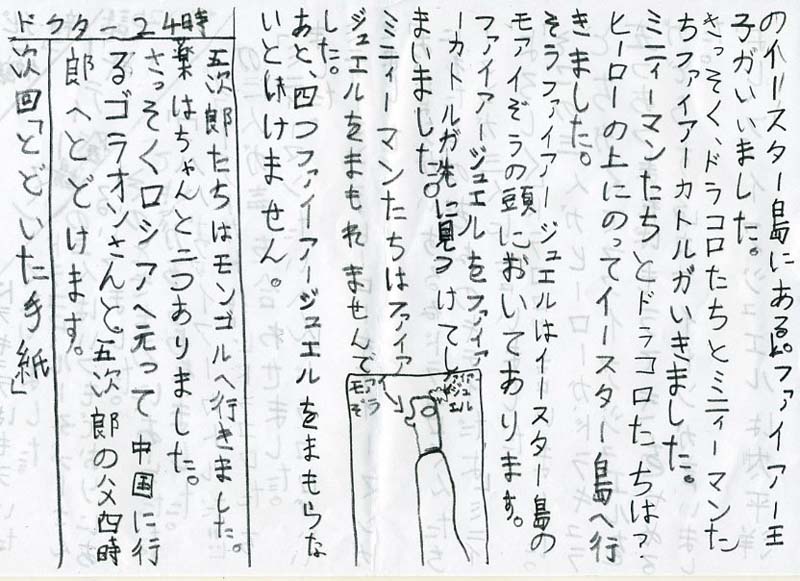 のイースター島にあると。ファイアー王
子がいいました。
さっそく、ドラコロたちとミニィーマンた
ちファイアーカトルガいきました。
ミニィーマンたちとドラコロたちは?
ヒーローの上にのってイースター島へ行
きました。
そうファイアージュエルはイースター島の
モアイぞうの頭においてあります。
ファイアージュエルをファイア
ーカトルガ先に見つけてし
まいました。
ミニィーマンたちはファイア
ジュエルをまもれませんで
した。
ファイアジュエル
モアイぞう
あと、四つファイアージュエルをまもらな
いといけません。
ドクター24時
五次郎たちはモンゴルへ行きました。
薬はちゃんと二つありました。
さっそくロシアへ元って中国に行
るゴラオンさんと。五次郎の父四時
郎へとどけます。
次回「とどいた手紙」